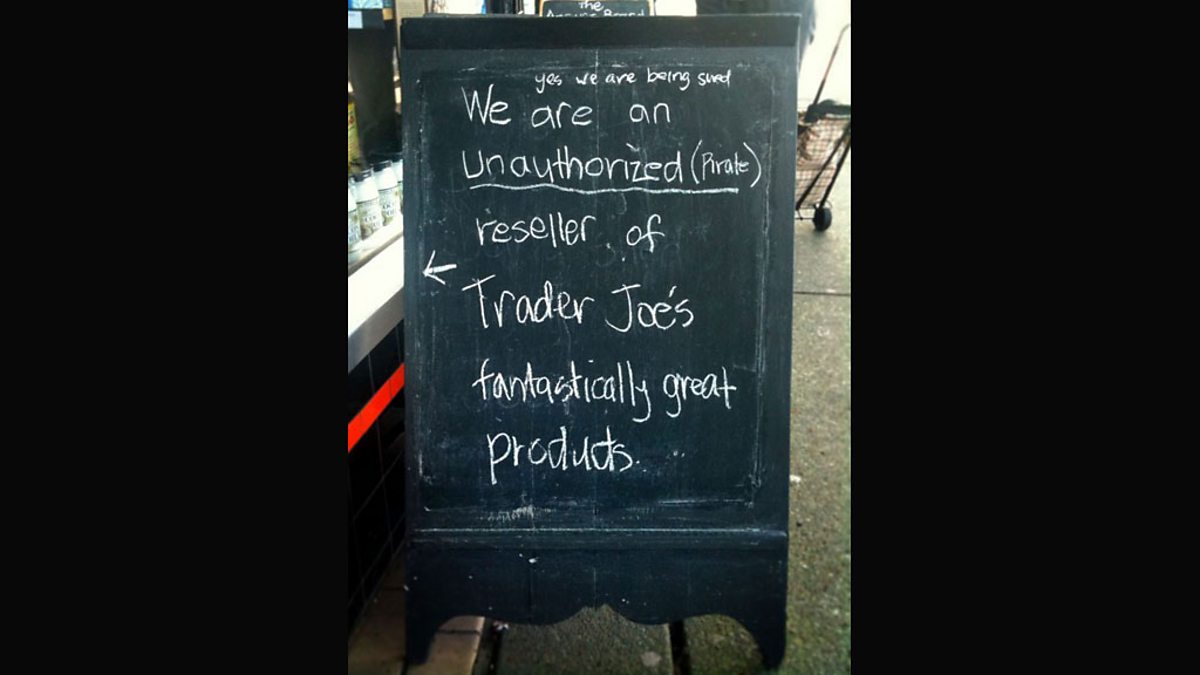 The
Answer Board
yes we are being sued
We are an
unauthorized (Pirate)
reseller of
← Trader Joe's
fantastically great
products.